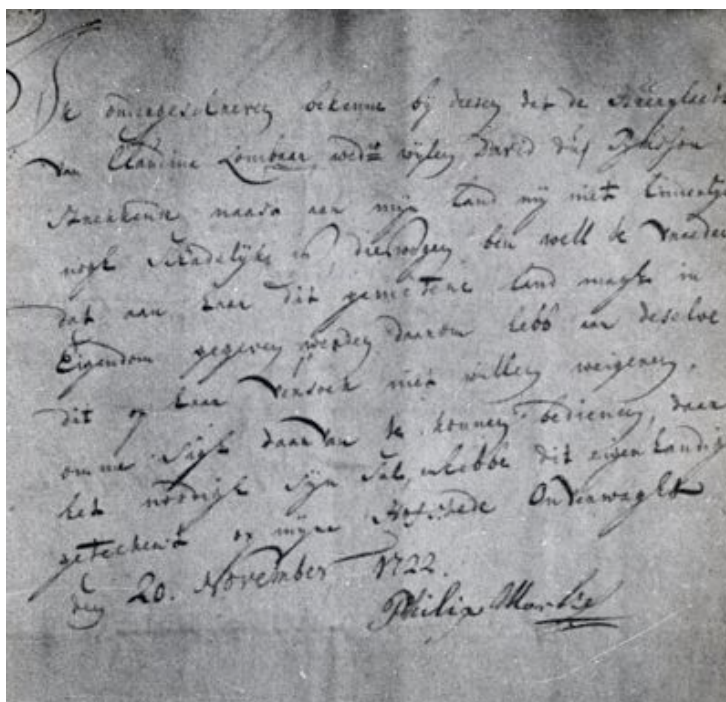 Ik ondergeschreven bekenne bij desen dat de
van Claudina Lombaar wed.e wijlen David du Buisson
Streckende naast aan mijn land mij niet
nogh Schadelijk is, dieswegen ben well te vreeden
dat aan haar dit gemetene land magh in
Eigendom gegeven werden daarom hebb aan deselve
dit op haar Versoek niet willen weigeren,
omme Sigh daar Van te konnen bedienen, daar
het noodigh Sijn Sal, en hebbe dit eigenhandigh
getekent op mijne Hofstede Onverwaght
den 20. November 1722.
Philip Morkel